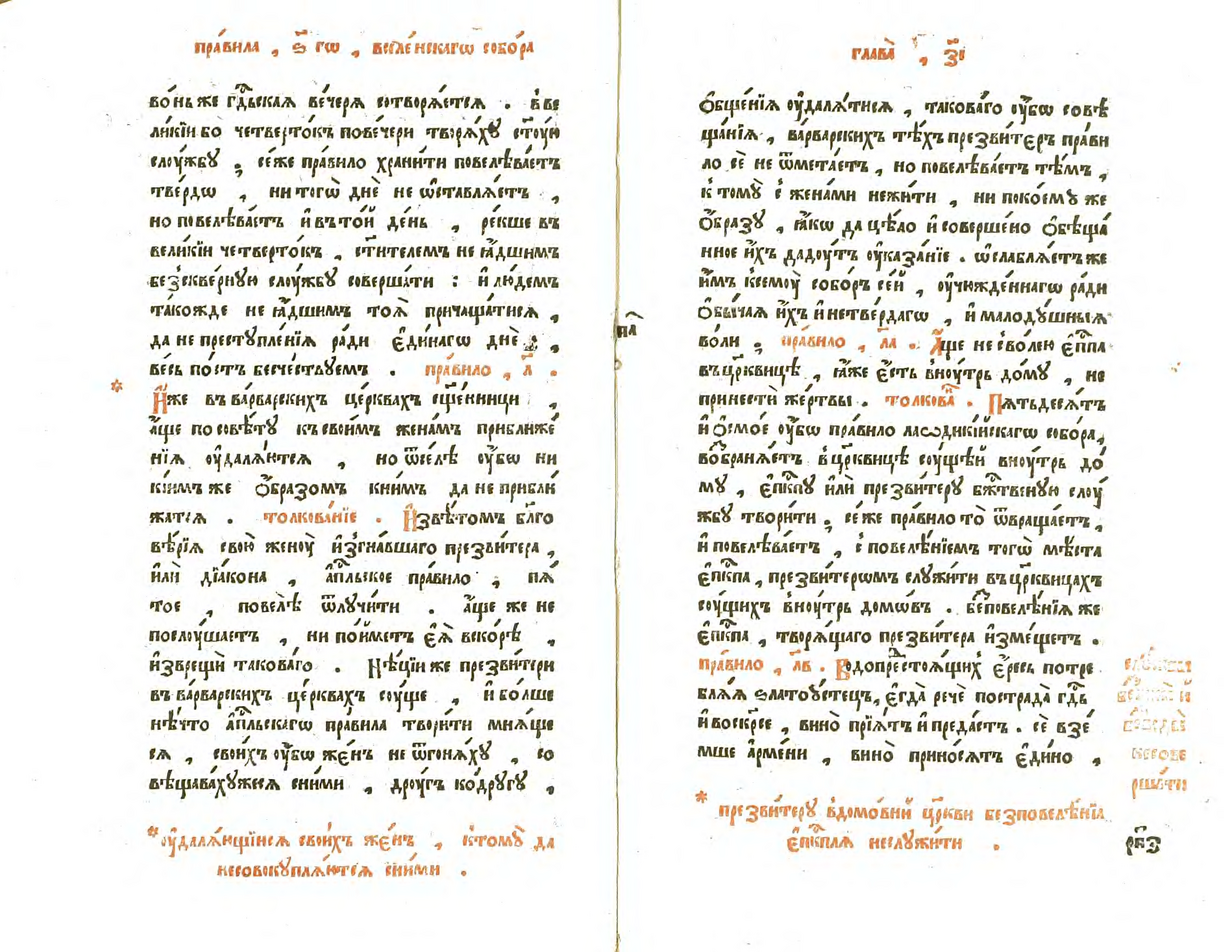 пра́вила , ѕ҃ гѡ , вселе́нскагѡ собо́ра
во́ньже гдⷭ҇ьская вече́рѧ сотворѧ́етсѧ . в̾ве
ли́кїи бо четверто́къ по вече́ри творѧ́хꙋ ст҃ꙋ́ю
слꙋ́жбꙋ ; се́же пра́вило храни́ти повелѣва́етъ
тве́рдѡ , ни тогѡ̀ днѐ не ѡ҆ставлѧ́етъ ,
но повелѣва́етъ и҆ в̾ то́й де́нь , ре́кше въ
вели́кїи четверто́къ , ст҃и́телемъ не ꙗ҆́дшимъ
без̾скве́рнꙋю слꙋ́жбꙋ соверша́ти : и҆ лю́демъ
тако́жде не ꙗ҆́дшимъ тоѧ̀ причаща́тисѧ ,
да не престꙋпле́нїѧ ра́ди є҆ди́нагѡ днѐ ,
ве́сь по́стъ бесче́ствꙋемъ . пра́вило , л҃ .
И҆̀же въ ва́рварскихъ це́рквахъ сщ҃е́нницы ,
а҆́ще по совѣ́тꙋ къ свои́мъ жена́мъ приближе́
нїѧ ᲂу҆далѧ́ютсѧ , но ѿсе́лѣ ᲂу҆́бѡ ни
ки́имъ же ѻ҆́бразомъ к̾ни́мъ да не прибли́
жатсѧ . толкова́нїе . И҆звѣ́томъ бл҃го
вѣ́рїѧ свою̀ женꙋ̀ и҆згна́вшаго презви́тера ,
и҆лѝ дїа́кона , а҆пⷭ҇льское пра́вило , пѧ́
тое , повелѣ̀ ѿлꙋчи́ти . а҆́ще же не
послꙋ́шаетъ , ни по́йметъ є҆ѧ̀ вско́рѣ ,
и҆зврещѝ такова́го . Нѣ́цїи же презви́тери
въ ва́рварскихъ це́рквахъ сꙋ́ще , и҆ бо́лше
нѣ́что а҆пⷭ҇льскагѡ пра́вила твори́ти мнѧ́ще
сѧ , свои́хъ ᲂу҆́бѡ же́нъ не ѿгонѧ́хꙋ , со
вѣщава́хꙋжесѧ сни́ми , дрꙋ́гъ ко дрꙋ́гꙋ ,
* ᲂу҆далѧ́ющїисѧ свои́хъ же́нъ , к̾томꙋ̀ да
не совокꙋплѧ́ютсѧ сни́ми .
па҃
глава̀ , з҃і
ѻ҆бще́нїѧ ᲂу҆далѧ́тисѧ , такова́го ᲂу҆́бѡ совѣ
ща́нїѧ , ва́рварскихъ тѣ́хъ презви́теръ пра́ви
ло сѐ не ѿмета́етъ , но повелѣва́етъ тѣ́мъ ,
к̾ томꙋ̀ с̾ жена́ми не жи́ти , ни по ко́емꙋ же
ѻ҆́бразꙋ , ꙗ҆́кѡ да цѣ́ло и҆ соверше́но ѻ҆бѣща́
нное и҆́хъ дадꙋ́тъ ᲂу҆каза́нїе . ѡ҆слаблѧ́етъ же
и҆́мъ к̾семꙋ̀ собо́ръ се́й , ᲂу҆чюжде́ннагѡ ра́ди
ѻ҆бы́чаѧ и҆́хъ и҆ нетве́рдагѡ , и҆ малодꙋ́шныѧ
во́ли ; пра́вило , ла҃ . А҆́ще не с̾во́лею є҆пⷭ҇па
въ цр҃квицѣ , ꙗ҆́же є҆́сть внꙋ́трь до́мꙋ , не
принестѝ же́ртвы . толкова́ . Пѧтьдесѧ́тъ
и҆ ѻ҆смо́е ᲂу҆́бѡ пра́вило лаѡдикі́йскагѡ собо́ра,
возбранѧ́етъ в̾ цр҃квицѣ сꙋ́щей внꙋ́трь до́
мꙋ , є҆пⷭ҇кпꙋ и҆лѝ презви́терꙋ бжⷭ҇твенꙋю слꙋ́
жбꙋ твори́ти ; се́же пра́вило то̀ ѿвраща́етъ ,
и҆ повелѣва́етъ , с̾ повелѣ́нїемъ тогѡ̀ мѣ́ста
є҆пⷭ҇кпа , презви́терѡмъ слꙋжи́ти въ цр҃квицахъ
сꙋ́щихъ внꙋ́трь домѡ́въ . бес̾повелѣ́нїѧ же
є҆пⷭ҇кпа , творѧ́щаго презви́тера и҆зме́щетъ .
пра́вило , лв҃ . Водопрестоѧ́щихъ є҆́ресь потре
блѧ́ѧ златоꙋ́стецъ, є҆гда̀ речѐ пострада̀ гдⷭ҇ь
и҆ воскр҃се , вино̀ прїѧ́тъ и҆ преда́стъ . сѐ взе́
мше а҆рме́ни , вино̀ прино́сѧтъ є҆ди́но ,
* презви́терꙋ в̾ домо́внѣй цр҃кви без̾ повелѣ́нїѧ
є҆пⷭ҇кплѧ не слꙋжи́ти .
не сове
рша́ти
рк҃з